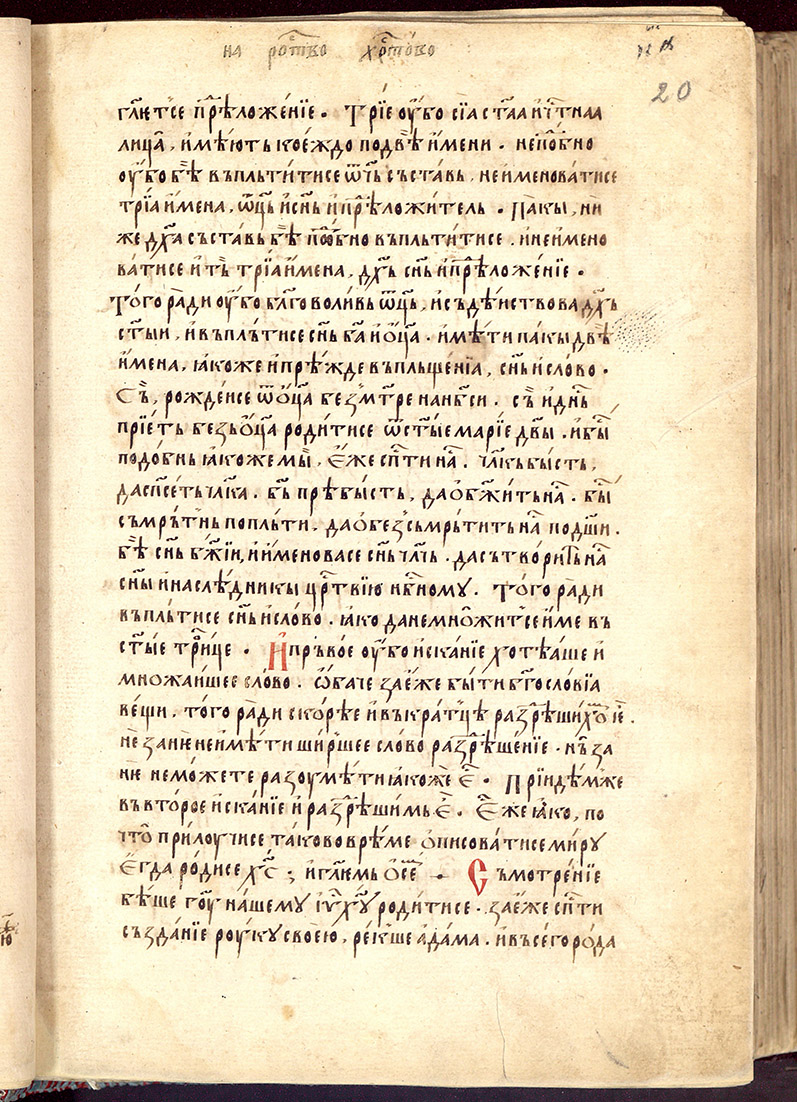 на рⷪжⷭ҇тво хрⷭ҇тово
20
гл҃ютсе прѣложе́нїе · Трїе оу҆́бо сїа ст҃аа и҆ чⷭ҇тнаа
лица̀, и҆мѣ́ють кое́ждо по двѣ̀ и҆́мени · не поⷣбно
оу҆́бо бѣ̀ въпльти́тисе ѿц҃ь съста́вь, не именова́тисе
трїа̀ и҆мена, ѿц҃ь и҆ сн҃ь и҆ прѣложи́тель · Па́кы, ни
же дх҃а съста́вь бѣ̀ поⷣбно въпльти́тисе · и не имено
ва́тисе и҆ тѣ̀ трїа̀ и҆мена, дх҃ь сн҃ь и҆ прѣложе́нїе ·
То́го ра́ди оу҆́бо бл҃говоли́вь ѿц҃ь, и҆ съдѣ́иствова дх҃ь
ст҃ыи, и҆ въплъ́тисе сн҃ь бг҃а и҆ ѻ҆ц҃а · и҆мѣ́ти па́кы двѣ̀
и҆мена, ꙗ҆́коже и҆ прѣ́жде въплъще́нїа, сн҃ь и҆ сло́во ·
Сь̀, рожде́исе ѿ ѻ҆ц҃а без мт҃ре на нб҃си · сь̀ и҆ дн҃ь
прїе́ть безь ѻ҆ц҃а роди́тисе ѿ ст҃ые марі́е дв҃ы · и҆ бы́
подо́бнь ꙗ҆́коже мы̀, є҆́же сп҃сти на́ⷭ҇ · чл҃кь бысть,
да сп҃сеть чл҃ка · бг҃ь прѣбы́сть, да ѻ҆б҃жи́ть наⷭ҇ · бы́
съмрь́тнь по пль́ти · да ѻ҆бе́зсьмрьтить наⷭ҇ по дш҃и ·
бѣ̀ сн҃ь бж҃їи, и҆ и҆менова́се сн҃ь чл҃чь · да сътвори́ть наⷭ҇
сн҃ы и҆ наслѣ́дникы црⷭ҇твїю нбⷭ҇ному · То́го ра́ди
въплъ́тисе сн҃ь и҆ сло́во · ꙗ҆́ко да не мно́житсе и҆́ме въ
ст҃ые тро́ице · И҆ пръво́е оу҆́бо и҆ска́нїе хотѣ́аше и҆
мно́жаишее сло́во · ѻ҆ба́че за е҆́же бы́ти бг҃осло́вїа
ве́щи, то́го ра́ди ско́рѣе и҆ въкра́тцѣ разрѣши́хѡⷨ іе҆̀ ·
не за ние не и҆мѣ́ти ши́ршее сло́во разрѣше́нїе · нь̀ за
ние не мо́жете разоумѣ́ти ꙗ҆́коже є҆ⷭ҇ · Прїидѣ́м же
въ второ́е и҆ска́нїе и҆ разрѣши́мь є҆̀ · Е҆́же ꙗ҆́ко, по
что̀ прилоу́чисе та́ково врѣ́ме ѻ҆писова́тисе ми́ру
є҆гда ро́дисе хⷭ҇ ; и҆ гл҃юмь ѻ҆ се́мь · Съмотре́нїе
бѣ́ше го҃у на́шему і҆у҃ х҃у роди́тисе · за е҆́же сп҃сти
създа́нїе роу́ку свое́ю, ре́кше ада́ма · и҆ въсего ро́да